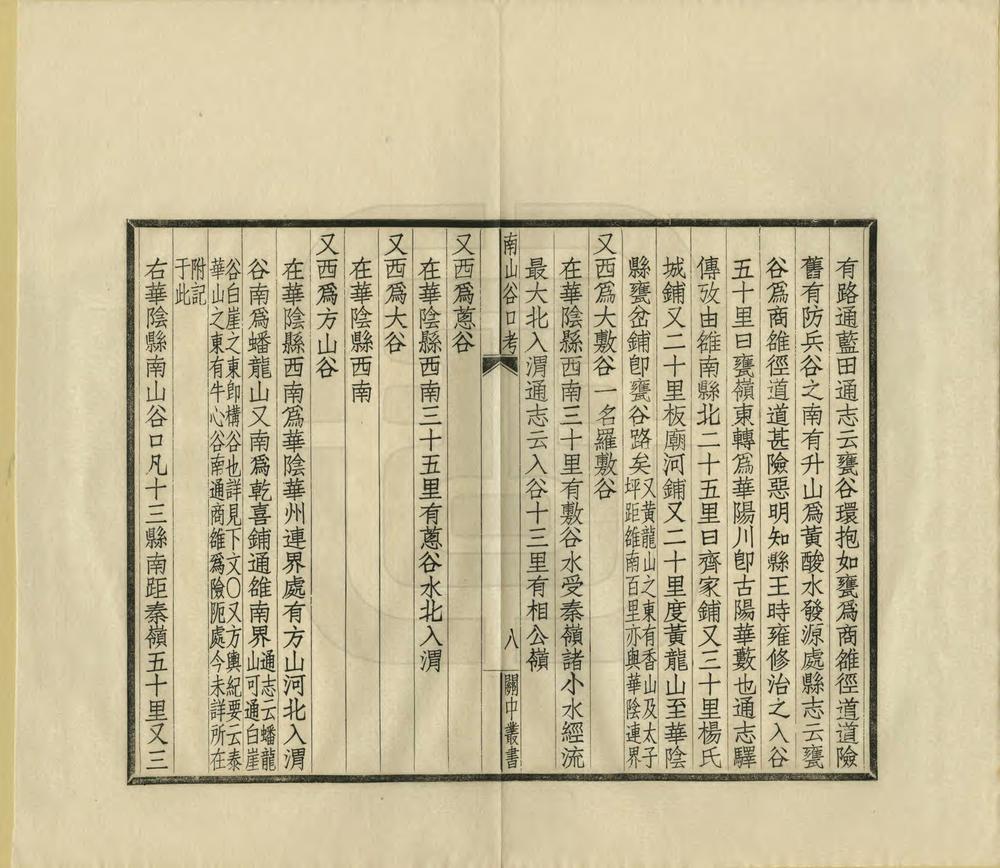 有路通藍田通志云甕谷環抱如甕爲商雒徑道道險
舊有防兵谷之南有升山爲黃酸水發源處縣志云甕
谷爲商雒徑道道甚險惡明知縣王時雍修治之入谷
五十里曰甕嶺東轉爲華陽川卽古陽華藪也通志驛
傳攷由雒南縣北二十五里曰齊家鋪又三十里楊氏
城鋪又二十里板廟河鋪又二十里度黃龍山至華陰
縣甕岔鋪卽甕谷路矣又黃龍山之東有香山及太子
坪距雒南百里亦與華陰連界
又西爲大敷谷一名羅敷谷
在華陰縣西南三十里有敷谷水受秦嶺諸小水經流
最大北入渭通志云入谷十三里有相公嶺
南山谷口考
八
關中叢書
又西爲蔥谷
在華陰縣西南三十五里有蔥谷水北入渭
又西爲大谷
在華陰縣西南
又西爲方山谷
在華陰縣西南爲華陰華州連界處有方山河北入渭
谷南爲蟠龍山又南爲乾喜鋪通雒南界通志云蟠龍
山可通白崖
谷白崖之東卽構谷也詳見下文〇又方輿紀要云泰
華山之東有牛心谷南通商雒爲險阨處今未詳所在
附記
于此
右華陰縣南山谷口凡十三縣南距秦嶺五十里又三